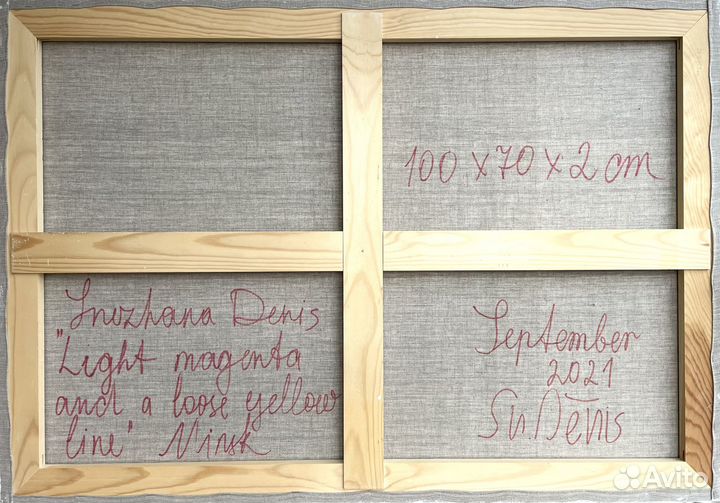 100 x 70 x 2 cm
Snozhana Denis
"Light magenta
and a loose yellow
line" Minsk
September
2021
Sn.Denis
Avito